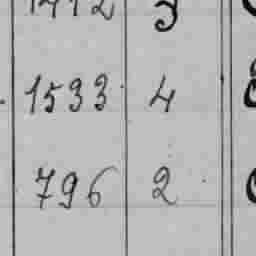 1533 4
796 2